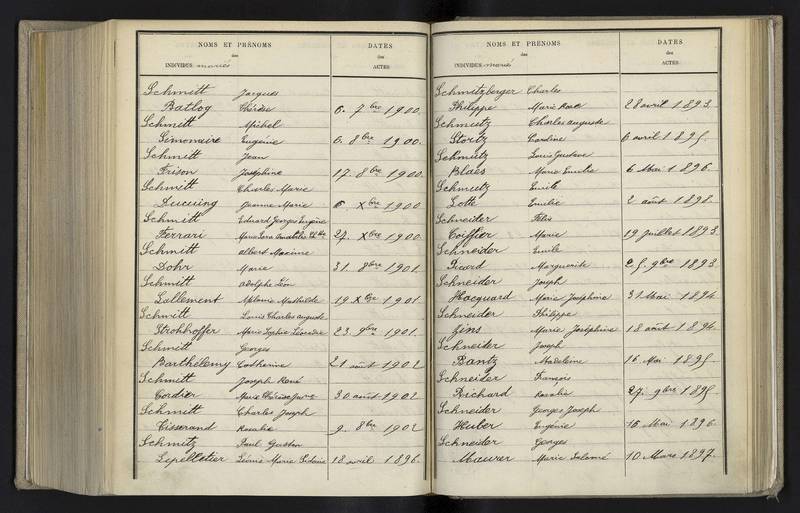 NOMS ET PRÉNOMS
des
INDIVIDUS mariés
DATES
des
ACTES
Schmitt Jacques
Batlog Thérèse 6. 7bre 1900.
Schmitt Michel
Simonaire Eugénie 6. 8bre 1900.
Schmitt Jean
Frison Joséphine 17. 8bre 1900.
Schmitt Charles Marie
Ducuing Jeanne Marie Xbre 1900
Schmitt Eduard Georges Eugène
Ferrari Marie 27. Xbre 1900.
Schmitt Albert Maxime
Dohr Marie 31. 8bre 1901.
Schmitt Adolphe Léon
Lallement Mélanie Mathilde 19 Xbre 1901
Schmitt Louis Charles Auguste
Strohhoffer Marie Sophie Léocadie 23. 9bre 1901.
Schmitt Georges
Barthélemy Catherine 21 août 1902
Schmitt Joseph René
Cordier Marie Thérèse Jane 30 août 1902
Schmitt Charles Joseph
Tisserand Rosalie 9. 8bre 1902
Schmitz Paul Gaston
Lepelletier Léonie Marie Sidonie 18 avril 1896.
NOMS ET PRÉNOMS
des
INDIVIDUS mariés
DATES
des
ACTES
Schmitzberger Charles
Philippe Marie Rose 28 avril 1893.
Schmutz Charles Auguste
Stortz Caroline 6 avril 1895.
Schmutz Louis Gustave
Blaës Marie Emilie 6 Mai 1896.
Schmutz Emile
Lotte Emilie 2 août 1898.
Schneider Félix
Coiffier Marie 19 Juillet 1893.
Schneider Emile
Picard Marguerite 25. 9bre 1893
Schneider Joseph
Hocquard Marie Joséphine 31 Mai 1894
Schneider Philippe
Zins Marie Joséphine 18 août 1894.
Schneider Joseph
Bantz Madeleine 16 Mai 1895.
Schneider François
Richard Rosalie 27. 9bre 1895
Schneider Georges Joseph
Huber Eugénie 16 Mai 1896.
Schneider Georges
Maurer Marie Salomé 10 Mars 1897.